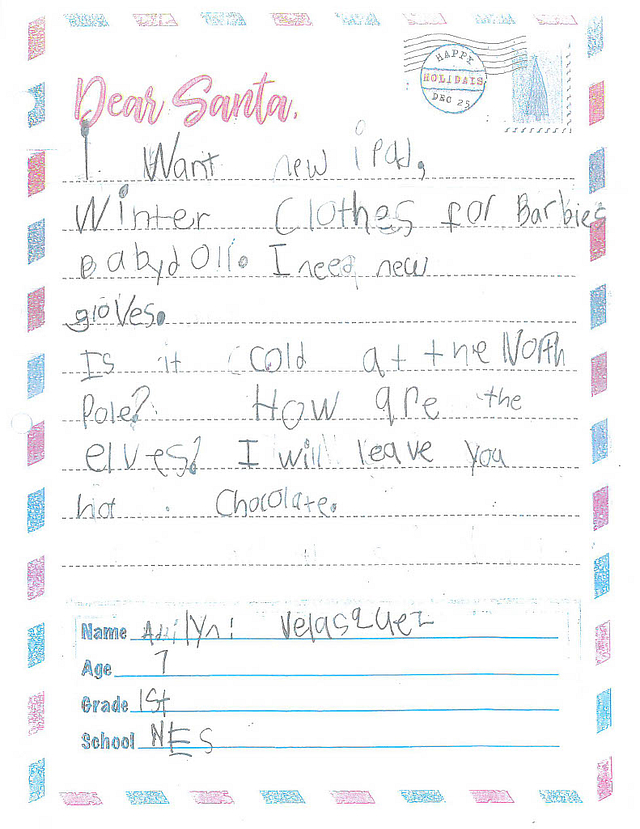 HAPPY
HOLIDAYS
DEC 25
Dear Santa,
I Want new ipad,
Winter Clothes for Barbies
Babydoll. I need new
gloves.
Is it cold at the North
Pole? How are the
elves? I will leave you
hot Chocolate.
Name Velasquez
Age 7
Grade 1st
School NES